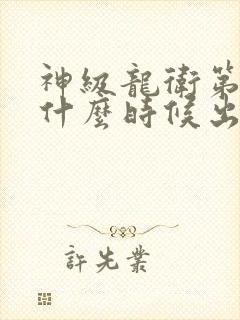 神級龍衛第
什麼時候出
許先業